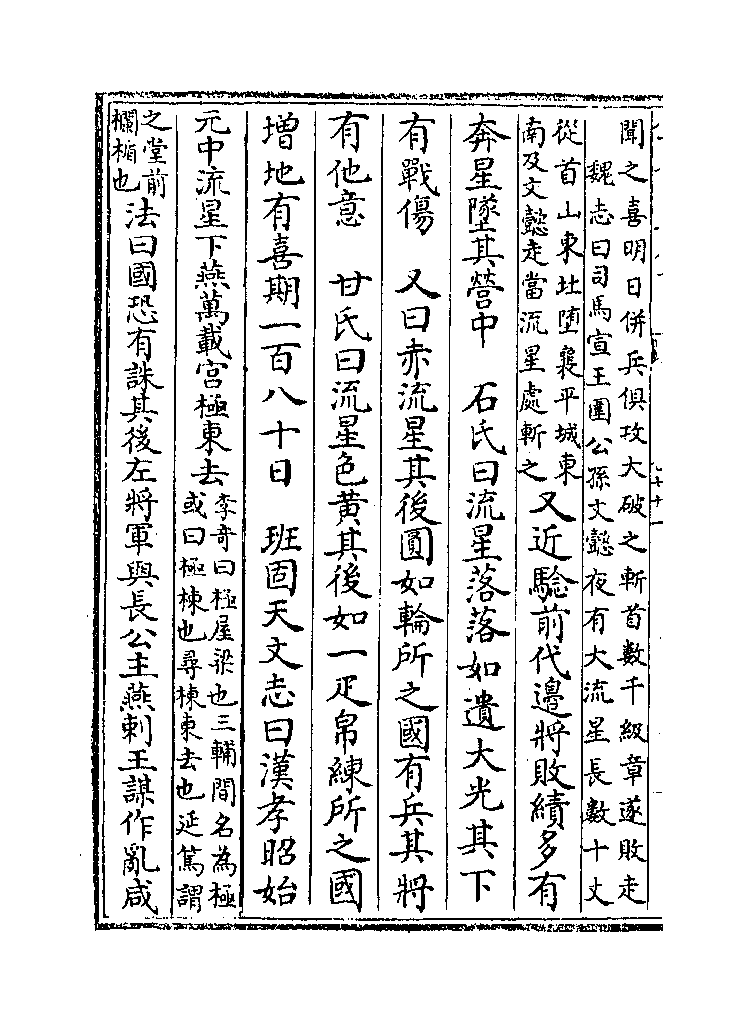 聞之喜明日併兵俱攻大破之斬首數千級章遂敗走
魏志曰司馬宣王圍公孫文懿夜有大流星長數十丈
從首山東北墮襄平城東
南及文懿走當流星處斬之
又近驗前代邊將敗績多有
奔星墜其營中　石氏曰流星落落如遺大光其下
有戰傷　又曰赤流星其後圓如輪所之國有兵其將
有他意　甘氏曰流星色黃其後如一疋帛練所之國
增地有喜期一百八十日　班固天文志曰漢孝昭始
元中流星下燕萬載宮極東去
李奇曰極屋梁也三輔間名為極
或曰極棟也尋棟東去也延篤謂
之堂前
欄楯也
法曰國恐有誅其後左將軍與長公主燕剌王謀作亂咸